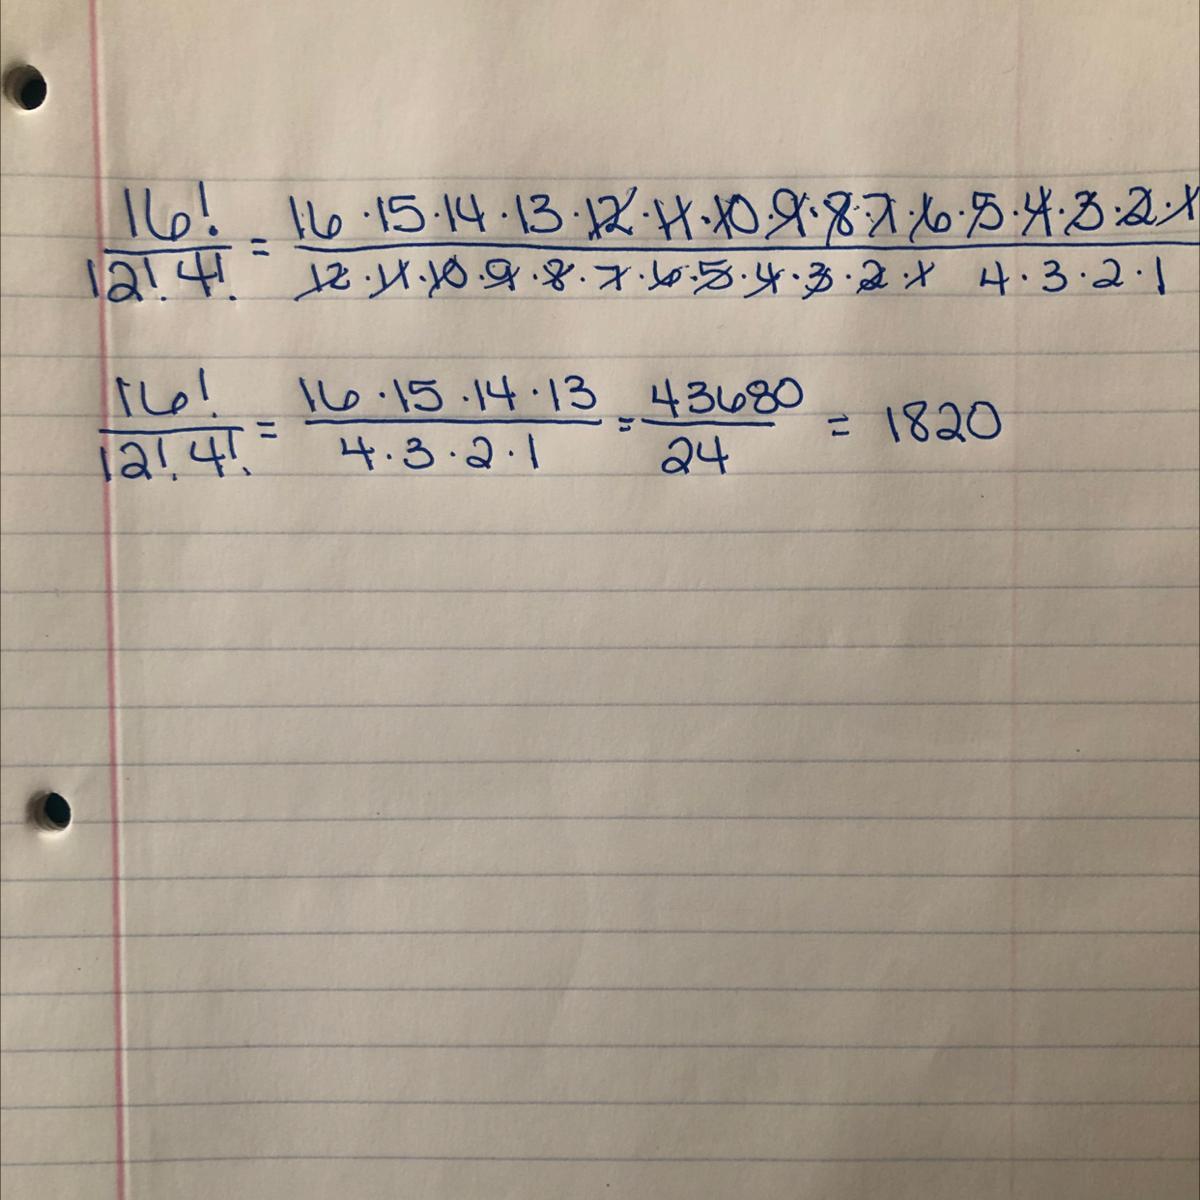 16!/12!4! = 16·15·14·13·12·11·10·9·8·7·6·5·4·3·2·1/12·11·10·9·8·7·6·5·4·3·2·1 4·3·2·1
16!/12!4! = 16·15·14·13/4·3·2·1 = 43680/24 = 1820